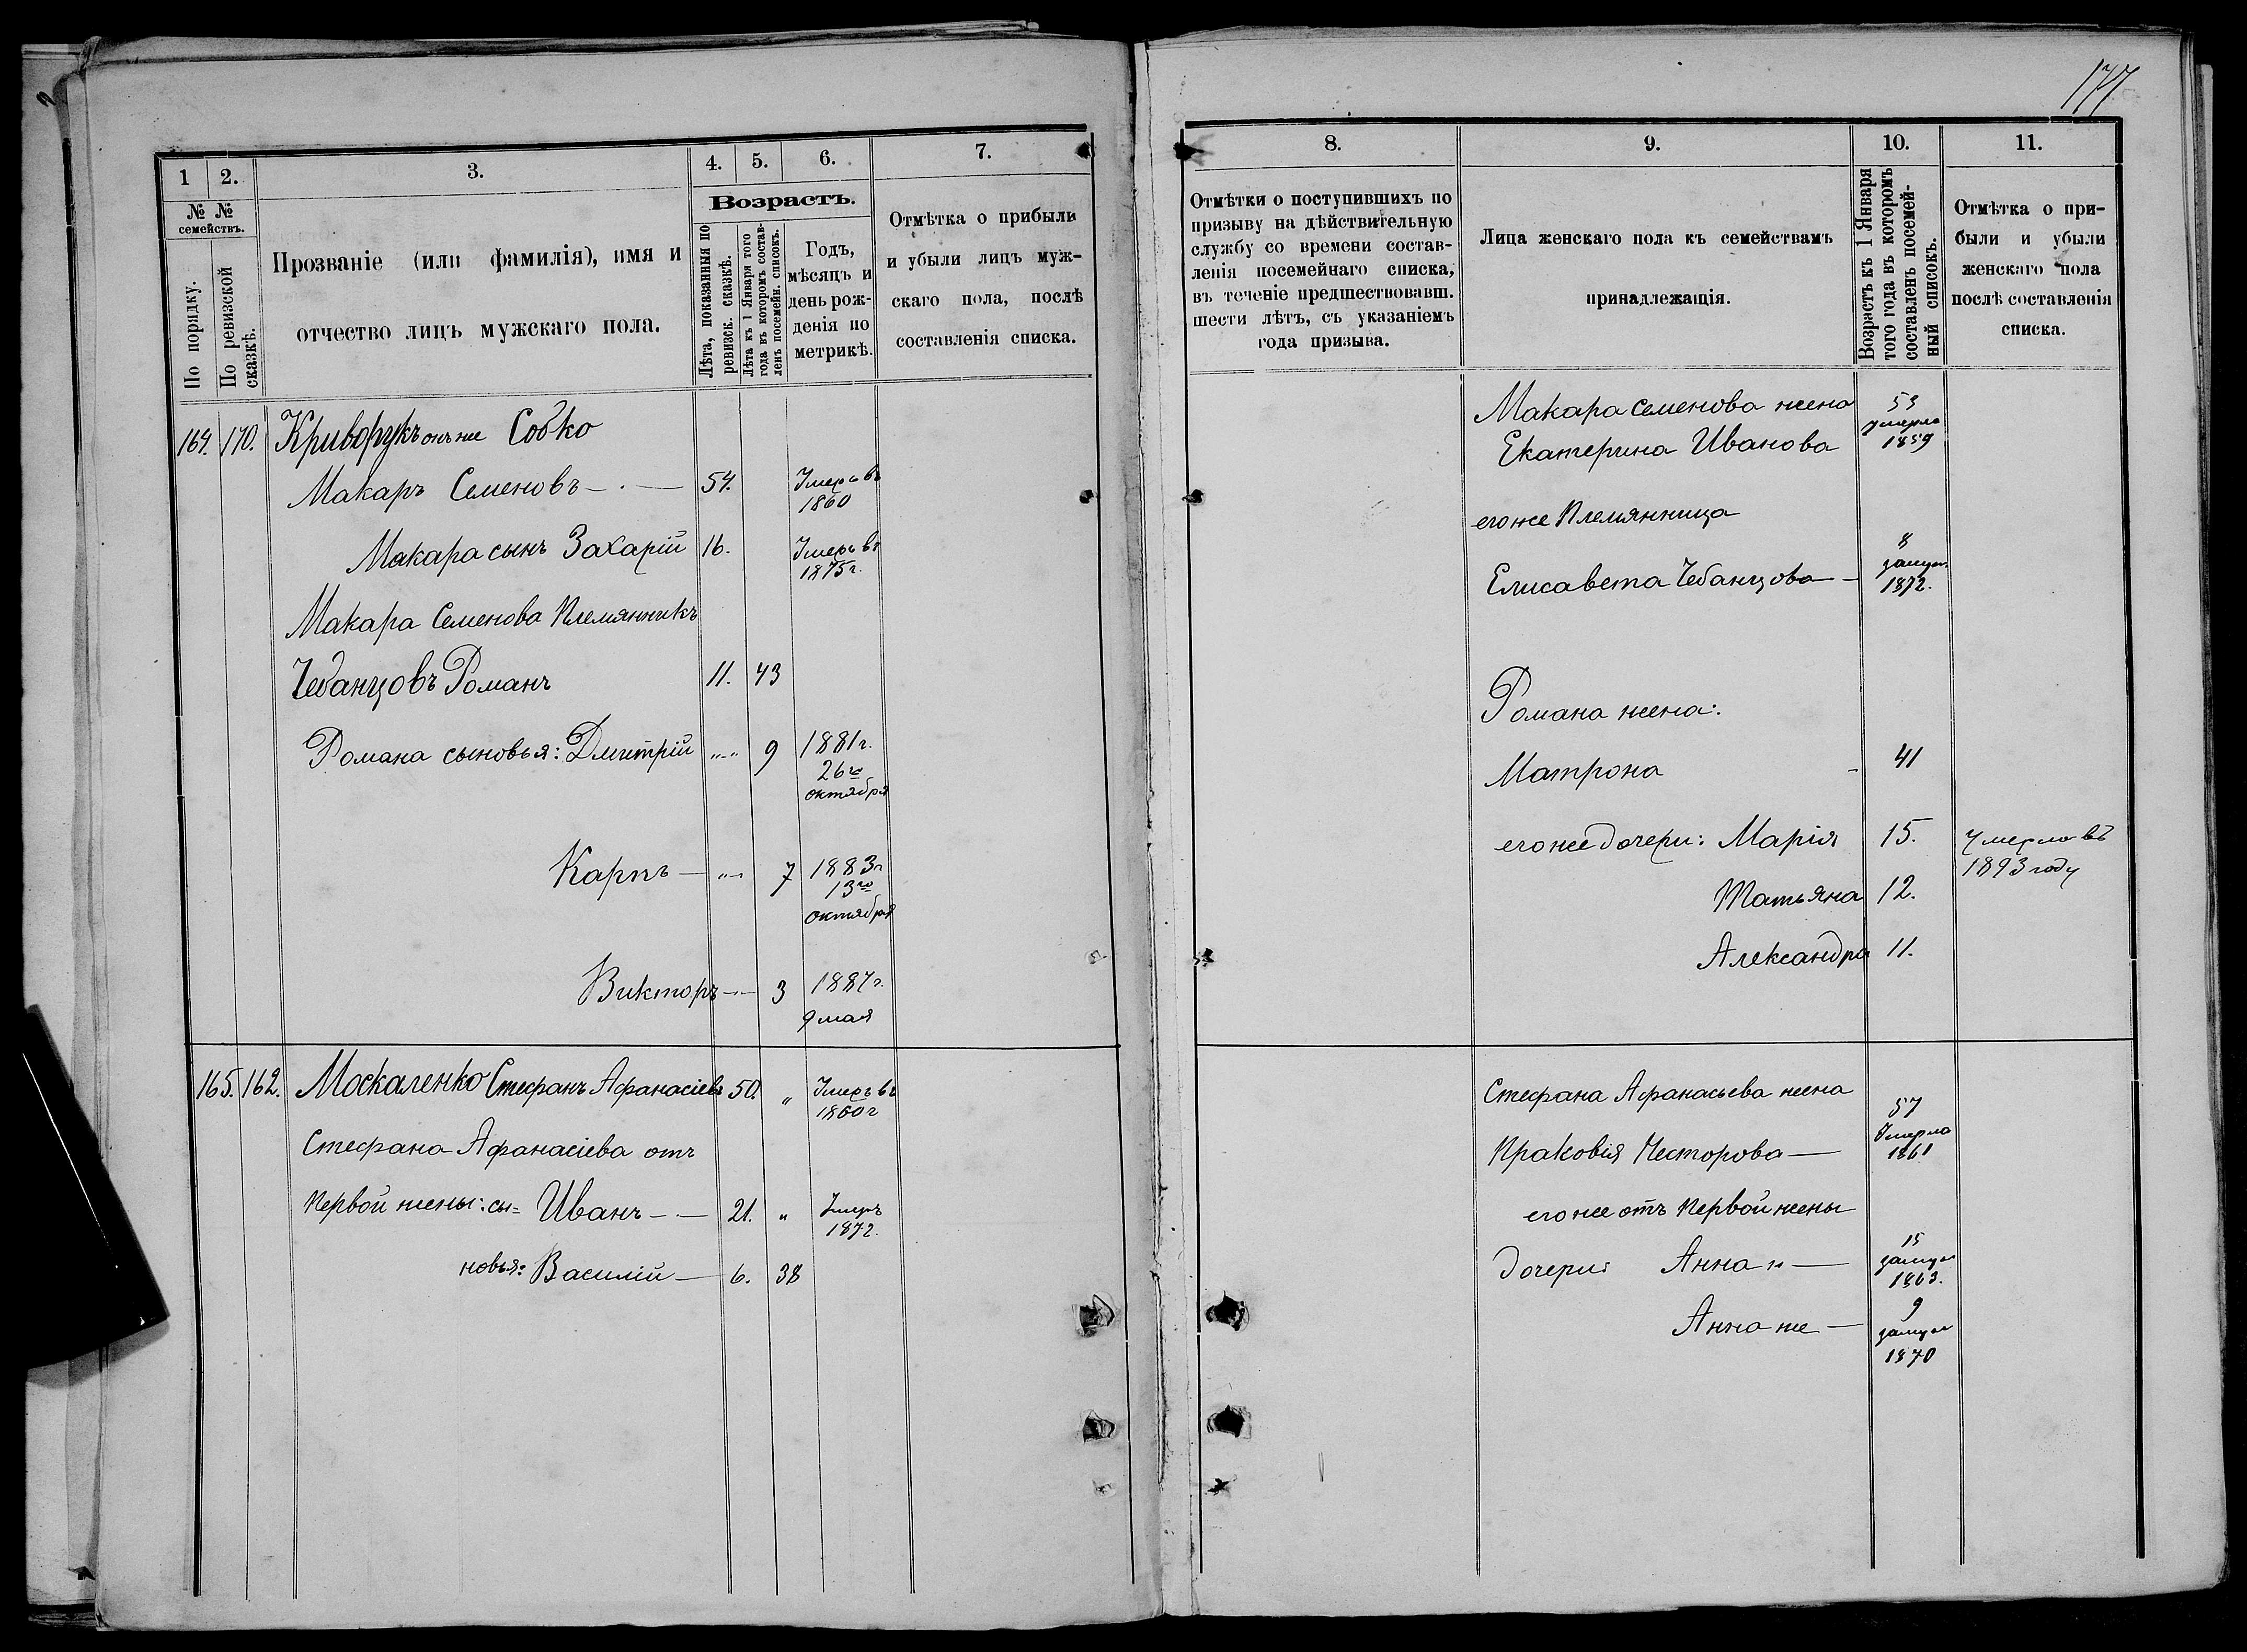 177
1 2. 3. 4. 5. 6. 7.
№ № семействъ.
По порядку.
По ревизской сказкѣ.
Прозваніе (или фамилія), имя и
отчество лицъ мужскаго пола.
Возрастъ.
Лѣта, показанныя по
ревизск. сказкѣ.
Лѣта къ 1 Января того
года въ которомъ состав-
ленъ посемейн. списокъ.
Годъ,
мѣсяцъ и
день рож-
денія по
метрикѣ.
Отмѣтка о прибыли
и убыли лицъ муж-
скаго пола, послѣ
составленія списка.
164. 170. Криворукъ онъ же Собко
Макаръ Семеновъ 54. Умеръ въ
1860
Макара сынъ Захарій 16. Умеръ въ
1875г.
Макара Семенова Племянникъ
Чебанцовъ Романъ 11. 43
Романа сыновья: Дмитрій „-„ 9 1881г.
26го
октября
Карпъ — „-„ 7 1883г
13го
октября
Викторъ — 3 1887г.
9 мая
165. 162. Москаленко Стефанъ Афанасіевъ 50. „ Умеръ въ
1860г
Стефана Афанасіева отъ
Первой жены: сы= Иванъ — 21. „ Умеръ
1872.
новья: Василій — 6. 38
8. 9. 10. 11.
Отмѣтки о поступившихъ по
призыву на дѣйствительную
службу со времени состав-
ленія посемейнаго списка,
въ теченіе предшествовавш.
шести лѣтъ, съ указаніемъ
года призыва.
Лица женскаго пола къ семействамъ
принадлежащія.
Возрастъ къ 1 Января
того года въ которомъ
составленъ посемей-
ный списокъ.
Отмѣтка о при-
были и убыли
женскаго пола
послѣ составленія
списка.
Макара Семенова жена 53
умерла
Екатерина Иванова 1859
его же Племянница
8
Елисавета Чебанцова — замуж.
1872.
Романа жена:
Матрона - 41
его же дочери: Марія 15. Умерла въ
1893 году
Татьяна 12.
Александра 11.
Стефана Афанасьева жена
57
Праковія Несторова — Умерла
1861
его же отъ Первой жены
15
дочери: Анна и — замуж
1863.
9
Анна же — замуж
1870